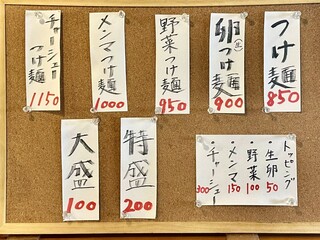 つけ麺
850
卵(生)つけ麺
900
野菜つけ麺
950
メンマつけ麺
1000
チャーシューつけ麺
1150
トッピング
・生卵 50
・野菜 100
・メンマ 150
・チャーシュー 300
特盛
200
大盛
100